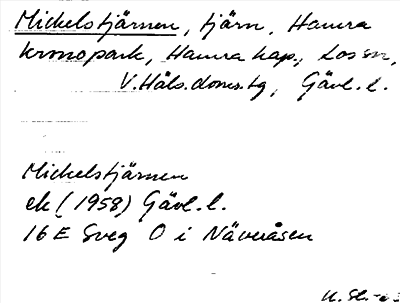 Mickelstjärnen, tjärn, Hamra
kronopark, Hamra kap., Los sn,
V. Häls. doms. tg, Gävl. l.
Mickelstjärnen
ek (1958) Gävl. l.
16 E Sveg O i Näveråsen